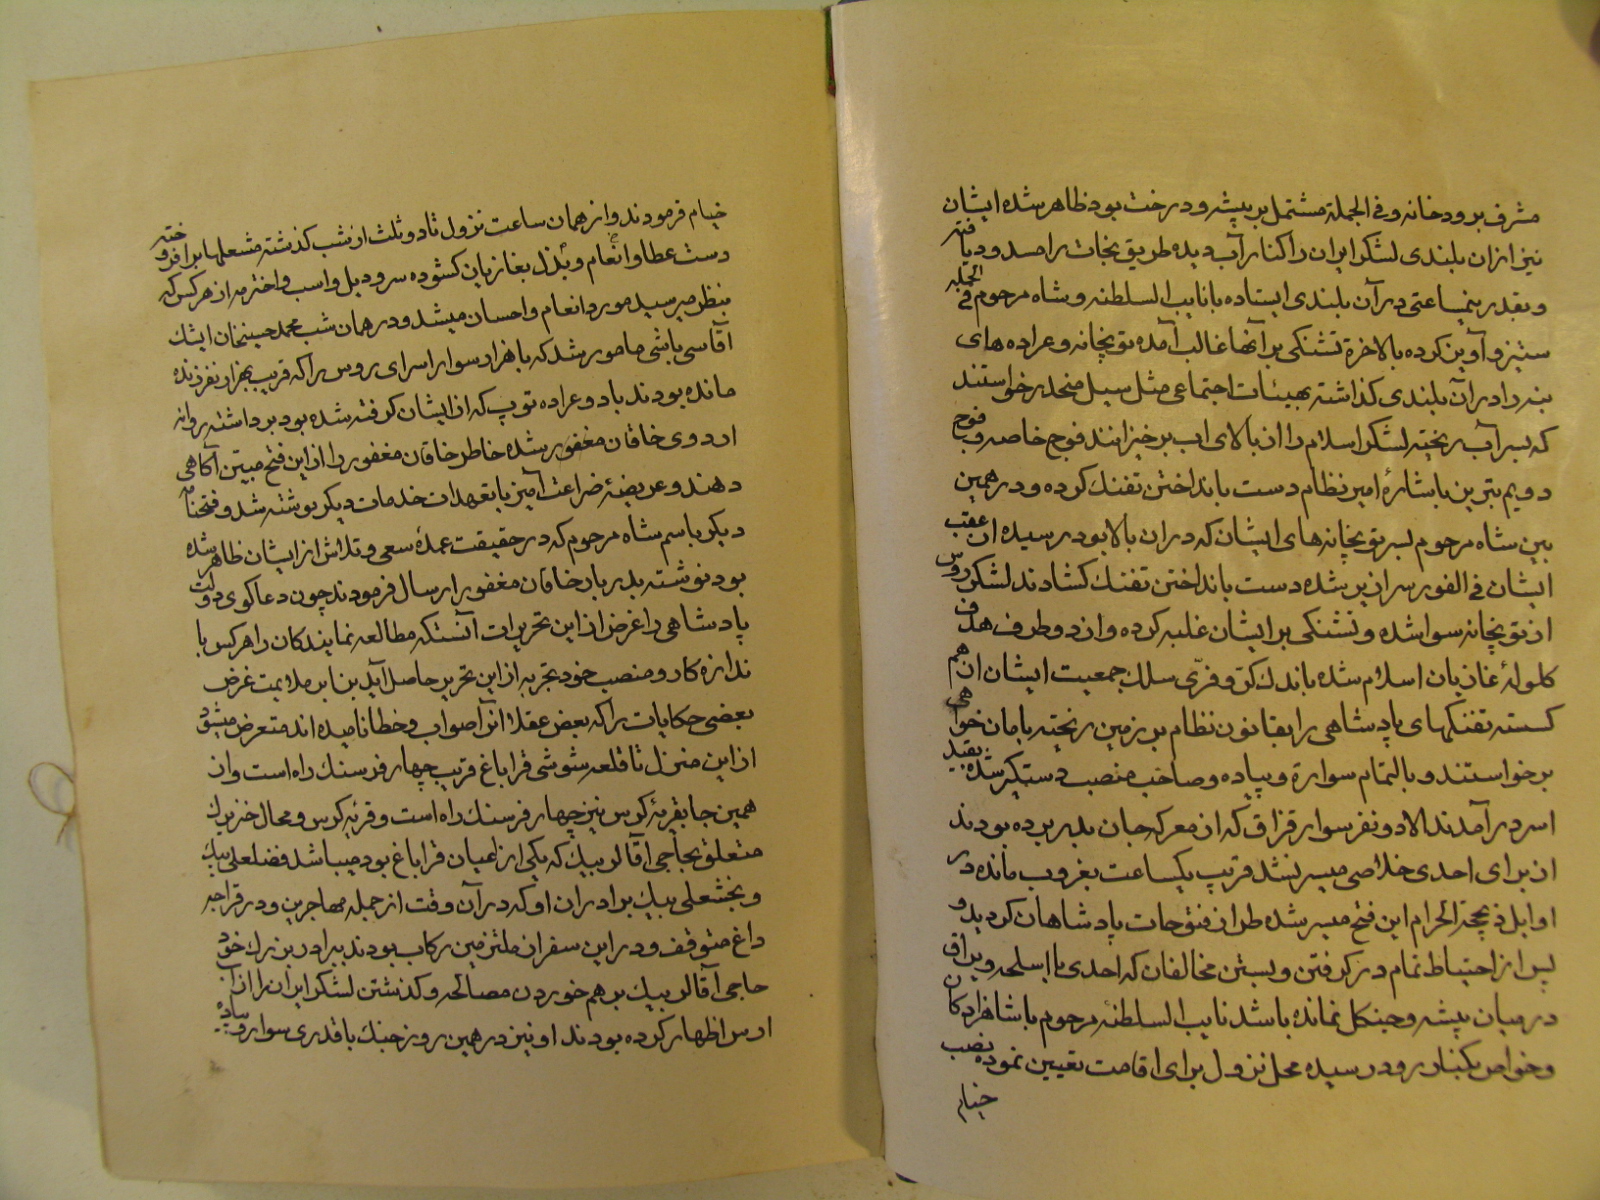 مشرف برودخانه و فی الجمله مشتمل بر بیشه و درخت بود ظاهر شده ایشان
نیز از ان بلندی لشکر ایران را کنار آب دیده طریق نجات را مسدود یافته
و بقدر نیمساعتی در آن بلندی ایستاده با نایب السلطنه و شاه مرحوم فی الجمله
ستیز و آویز کرده بالاخره تشنکی بر آنها غالب آمده توپخانه و عراده های
بنه را در آن بلندی کذاشته بهیئات اجتماعی مثل سیل منحدر خواستند
که بسر آب ریخته لشکر اسلام را از بالای اب برخیزانند فوج خاصه و فوج
دویم تبریز باشارهٔ امیر نظام دست بانداختن تفنک کرده و در همین
بین شاه مرحوم بسر توپخانه های ایشان که در ان بالا بود رسیده از عقب
ایشان فی الفور سرازیر شده دست بانداختن تفنک کشادند لشکر روس
از توپخانه سوا شده و تشنکی بر ایشان غلبه کرده و از دو طرف هدف
کلولهٔ غازیان اسلام شده باندک کرّ و فرّی سلک جمعیت ایشان از هم
کسسته تفنکهای پادشاهی را بقانون نظام بر زمین ریخته بامان خواهی
برخواستند و بالتمام سواره و پیاده و صاحب منصب دستکیر شده بقید
اسر در آمدند الا دو نفر سوار قزاق که از معرکه جان بدر برده بودند
از برای احدی خلاصی میسر نشد قریب یکساعت بغروب مانده در
اوایل ذیحجة الحرام این فتح میسر شده طراز فتوحات پادشاهان کردید و
پس از احتیاط تمام در کرفتن و بستن مخالفان که احدی با اسلحه و یراق
در میان بیشه و جنکل نمانده باشد نایب السلطنهٔ مرحوم با شاهزادکان
و خواص بکنار رود رسیده محل نزول برای اقامت تعیین نموده بنصب
خیام
خیام فرمودند و از همان ساعت نزول تا دو ثلث از شب کذشته مشعلها بر افروخته
دست عطا و انعام و بذل بغازیان کشوده سر و دیل و اسب و اخترمه از هر کس که
بنظر میرسید مورد انعام و احسان میشد و در همان شب محمد حسینخان ایشک
آقاسی باشی مامور شد که با هزار سوار اسرای روس را که قریب بهزار نفر زنده
مانده بودند با دو عراده توپ که از ایشان کرفته شده بود برداشته روانه
اردوی خاقان مغفور شده خاطر خاقان مغفور را از این فتح مبین آکاهی
دهند و عریضهٔ ضراعت آمیز با تعهدات خدمات دیکر نوشته شد و فتحنامه
دیکر باسم شاه مرحوم که در حقیقت عمدهٔ سعی و تلاش از ایشان ظاهر شده
بود نوشته بدربار خاقان مغفور ارسال فرمودند چون دعا کوی دولت
پادشاهی را غرض از این تحریرات آنستکه مطالعه نمایندکان را هر کس با
ندازه کار و منصب خود تجربه از این تحریر حاصل آید بنابر ملایمت غرض
بعضی حکایات را که بعض عقلا انرا صواب و خطا نامیده اند متعرض میشود
از این منزل تا قلعه شوشی قراباغ قریب چهار فرسنک راه است و از
همین جا بقریهٔ کرس نیز چهار فرسنک راه است و قریه کرس و محال خنزیرک
متعلق بحاجی آقا لر بیک که یکی از اعیان قراباغ بود میباشد فضلعلی بیک
و بخشعلی بیک برادران او که در آن وقت از جمله مهاجرین و در قراجه
داغ متوقف و در این سفر از ملتزمین رکاب بودند ببرادر بزرک خود
حاجی آقا لر بیک بر هم خوردن مصالحه و کذشتن لشکر ایران را از آب
ارس اظهار کرده بودند او نیز در همین روز جنک با قدری سوار و پیاده